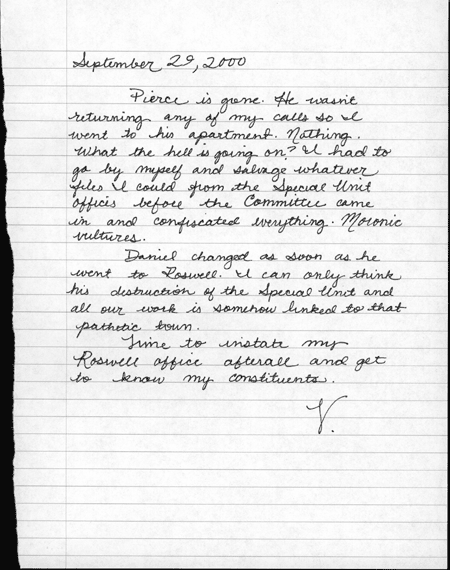 September 29, 2000
Pierce is gone. He wasn't
returning any of my calls so I
went to his apartment. Nothing.
What the hell is going on? I had to
go by myself and salvage whatever
files I could from the Special Unit
offices before the Committee came
in and confiscated everything. Moronic
vultures.
Daniel changed as soon as he
went to Roswell. I can only think
his destruction of the Special Unit and
all our work is somehow linked to that
pathetic town.
Time to instate my
Roswell office afterall and get
to know my constituents.
V.